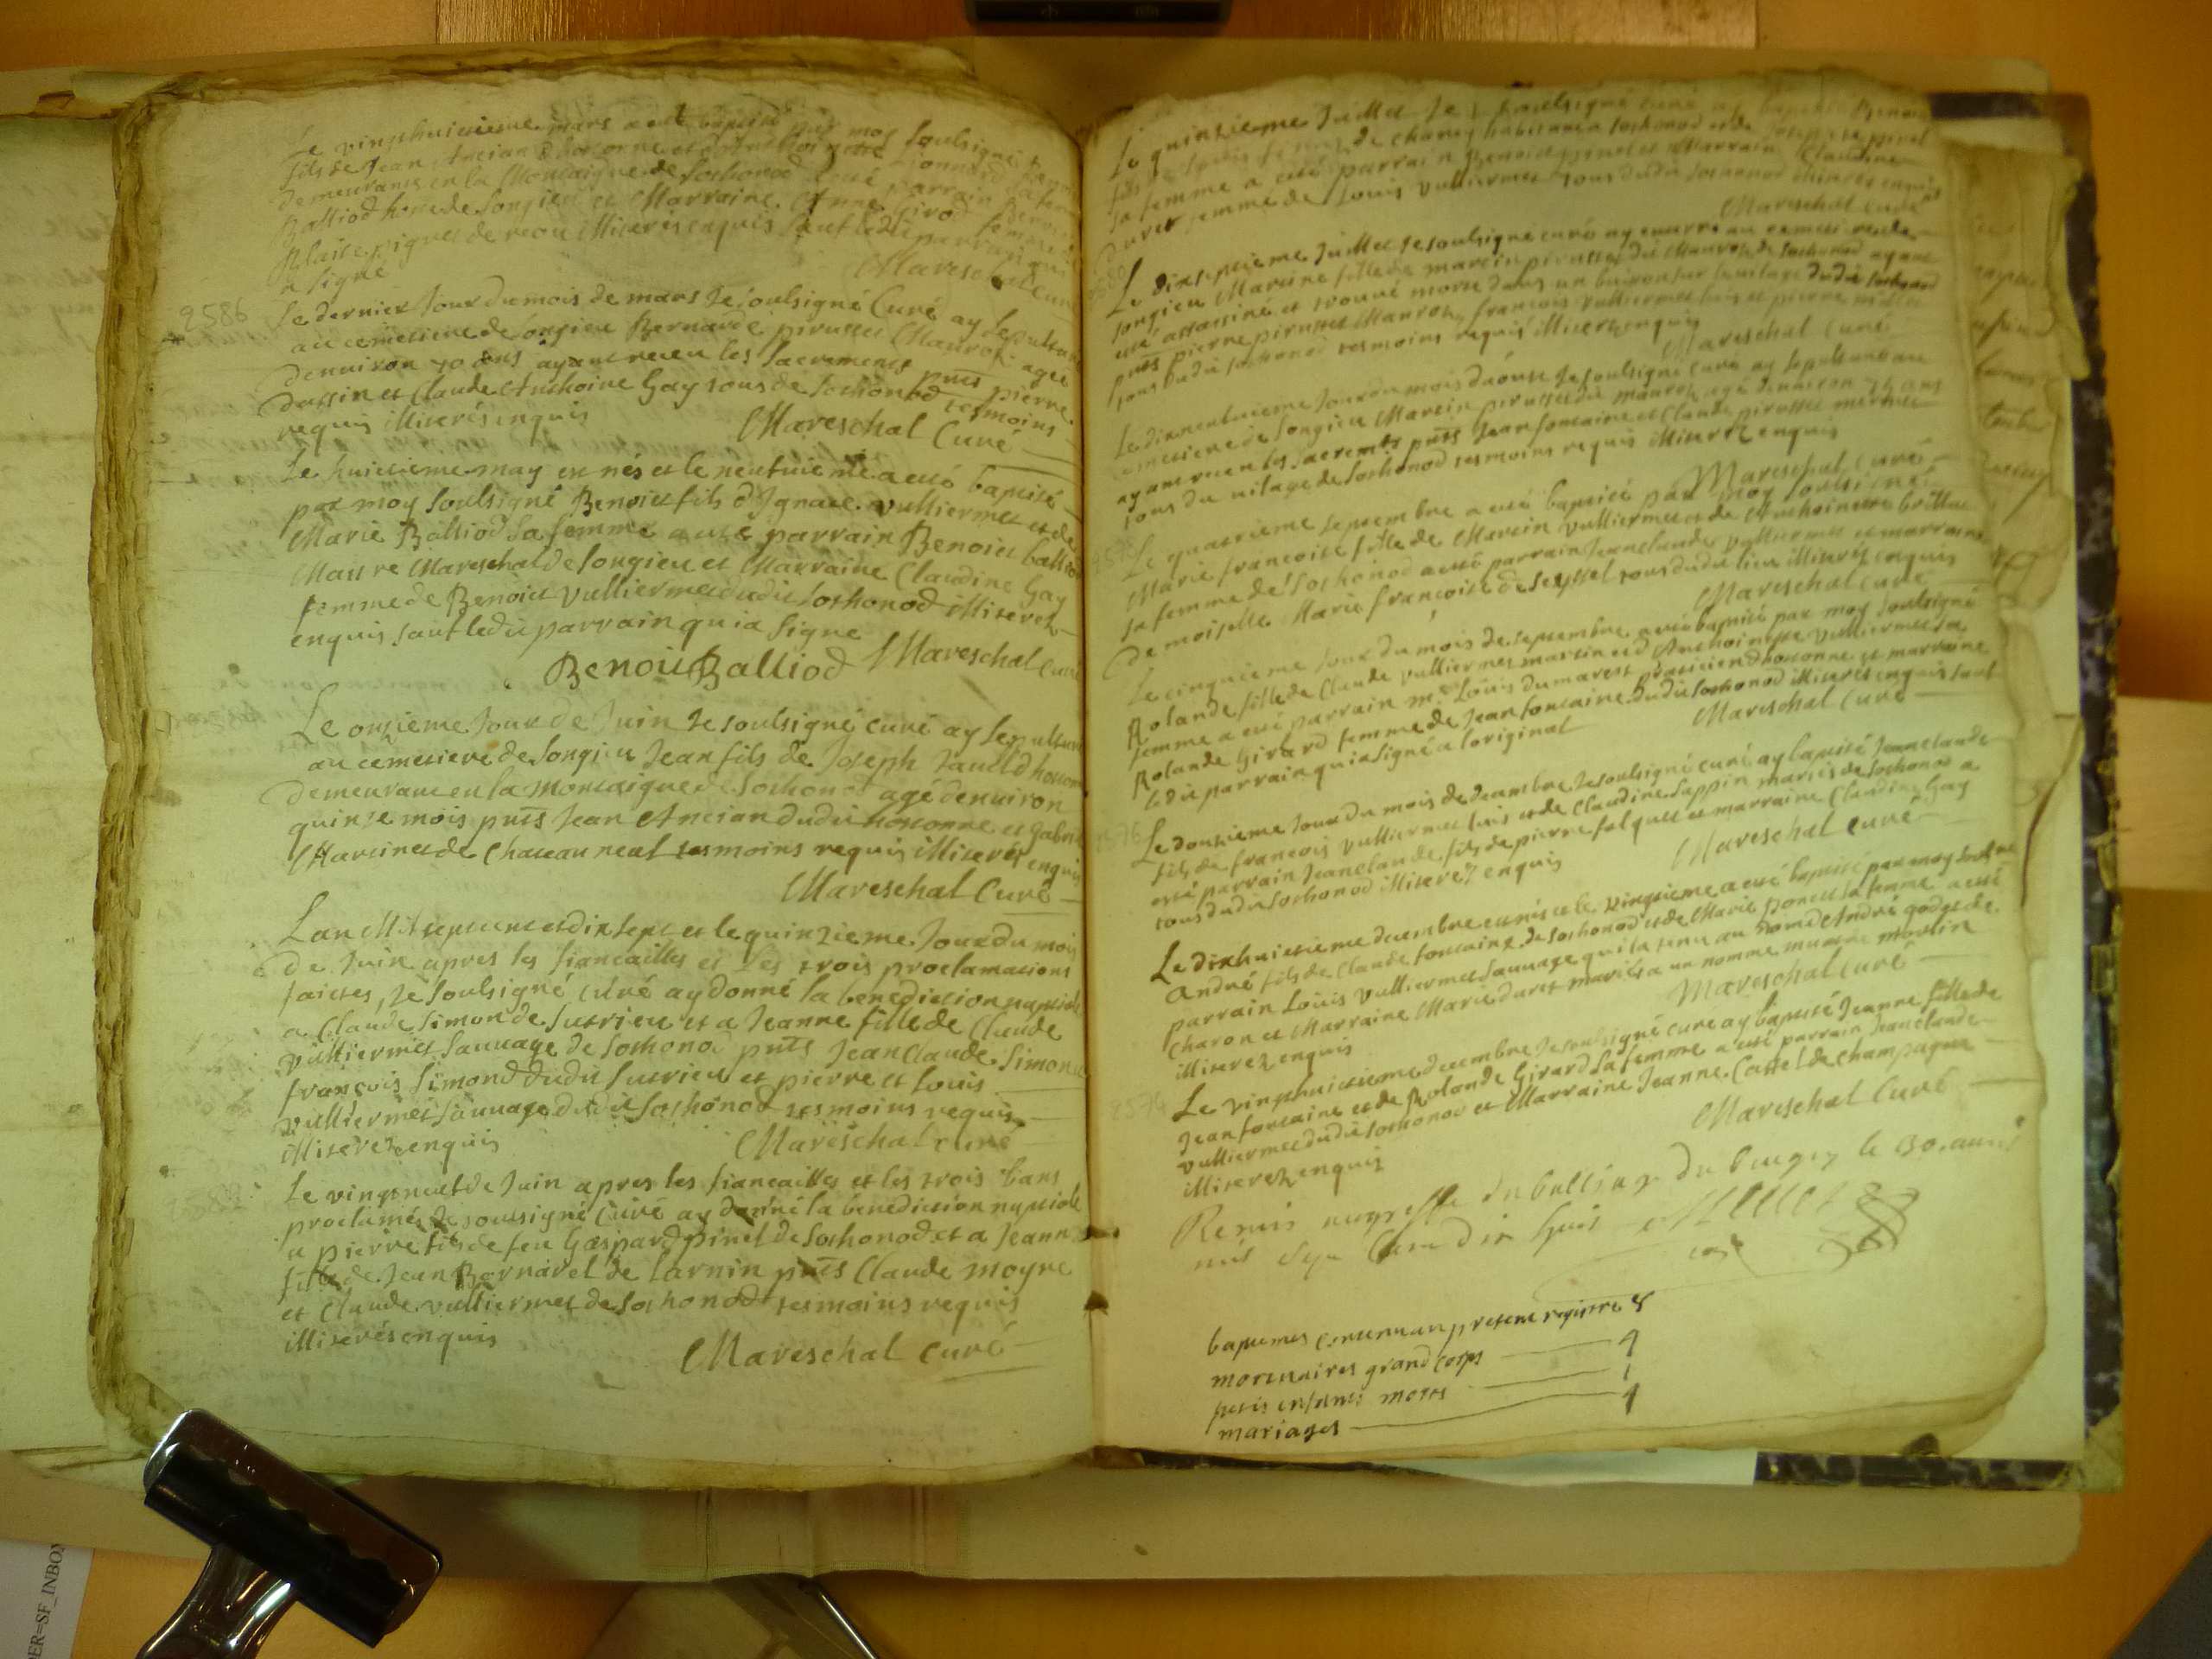 Le vingthuictieme mars a esté baptisé par moy soulsigné
fils de Jean Ancian d'hotonne
demeurants en la Montaigne de Sothonod a esté parrain
Balliod hoste de Songieu et Marraine Anne Girod femme de
Blaise de illiterés enquis sauf ledit parrain qui
a signé
Mareschal Curé
2586
Le dernier Jour du mois de mars Je soulsigné Curé ay sepulturé
au cemetiere de Songieu Bernarde pirusset Mauroz agée
denuiron 70 ans ayant receu les sacrements pnts pierre
dussin et Claude Anthoine Gay tous de Sothonod tesmoins
requis illiterés enquis
Mareschal Curé
Le huictieme may est nés et le neufuieme a esté baptisé
par moy soulsigné Benoict fils d'Ignace vulliermet et de
Marie Balliod sa femme a esté parrain Benoict balliod
Maistre Mareschal de Songieu et Marraine Claudine Gay
femme de Benoict vulliermet dudit Sothonod illiterez
enquis sauf ledit parrain qui a signe
Benoit Balliod Mareschal Curé
Le onzieme Jour de Juin Je soulsigné curé ay sepulturé
au cemetiere de Songieu Jean fils de Joseph d'hotonne
demeurant en la Montaigne de Sothonod agé denuiron
quinze mois pnts Jean Ancian dudit hotonne et Gabriel
Martinet de Chateauneuf tesmoins requis illiterés enquis
Mareschal Curé
Lan Mil sept cent et dix sept et le quinzieme Jour du mois
de Juin apres les fiancailles et les trois proclamations
faictes, Je soulsigné curé ay donné la benediction nuptiale
a Claude Simon de Sutrieu et a Jeanne fille de Claude
vulliermet Sauuage de Sothonod pnts Jean Claude Simond
françois Simond dudit Sutrieu et pierre et Louis
vulliermet Sauuage dudit Sothonod tesmoins requis
illiterez enquis
Mareschal curé
2582
Le vingtneuf de Juin apres les fiancailles et les trois bans
proclamés Je soulsigné Curé ay donné la benediction nuptiale
a pierre fils de feu Gaspard pinel de Sothonod et a Jeanne
fille de Jean Bernarel de Larnin pnts Claude moyne
et Claude vulliermet de Sothonod tesmoins requis
illiterés enquis
Mareschal curé
Le quinzieme Juillet Je soulsigné curé ay baptisé Benoit
fils de Louis de Chaney habitant a Sothonod et de
sa femme a esté parrain Benoict pinel et Marraine Claudine
Duret femme de Louis vulliermet tous dudit Sothonod illiterés enquis
Mareschal Curé
Le dixseptieme Juillet Je soulsigné curé ay enterré au cemetiere de
Songieu Martine fille de Martin pirusset dit Mauroz de Sothonod ayant
esté assassiné et trouué morte dans un buisson sur le uilage dudit Sothonod
pnts pierre pirusset Mauroz, françois vulliermet luis et pierre
tous dudit Sothonod tesmoins requis illiterez enquis
Mareschal Curé
Le dixneufuieme Jour du mois d'aoust Je soulsigné curé ay sepulturé au
cemetiere de Songieu Martin pirusset dit mauroz agé denuiron 75 ans
ayant receu les sacremts pnts Jean fontaine et Claude pirusset
tous du uilage de Sothonod tesmoins requis illiterez enquis
Mareschal Curé
Le quatrieme septembre a esté baptisé par moy soulsigné
Marie françoise fille de Martin vulliermet et de Anthoinette brillat
sa femme de Sothonod a esté parrain Jeanclaude vulliermet et marraine
Demoiselle Marie françoise de Seyssel tous dudit lieu illiterez enquis
Mareschal Curé
Le cinquieme Jour du mois de septembre a esté baptisé par moy soulsigné
Rolande fille de Claude vulliermet martin et d'Anthoinette vulliermet sa
femme a esté parrain mr Louis Dumarest praticien d'hotonne et marraine
Rolande Girard femme de Jean fontaine dudit Sothonod illiterés enquis sauf
ledit parrain qui a signé a loriginal
Mareschal Curé
2576
Le douzieme Jour du mois de decembre Je soulsigné curé ay baptisé Jeanclaude
fils de francois vulliermet luis et de Claudine Sappin mariés de Sothonod a
esté parrain Jeanclaude fils de pierre falquet et marraine Claudine Gay
tous dudit Sothonod illiterez enquis
Mareschal Curé
Le dixhuictieme decembre est nés et le vingtieme a esté baptisé par moy soulsigné
André fils de Claude fontaine de Sothonod et de Marie ponet sa femme a esté
parrain Louis vulliermet Sauuage qui la tenu au nom d'André godet de
Charon et Marraine Marie duret mariés a un nomme mumin morin
illiterez enquis
Mareschal Curé
2574
Le vingthuictieme decembre Je soulsigné curé ay baptisé Jeanne fille de
Jean fontaine et de Rolande Girard sa femme a esté parrain Jeanclaude
vulliermet dudit Sothonod et Marraine Jeanne Cattel de Champagne
illiterez enquis
Mareschal Curé
Remis au greffe du bailliage du bugey le 30. auril
mil sept cent dix huit
baptemes contenu au present registre 8
mortuaires grand corps 4
petis enfants morts 1
mariages 4